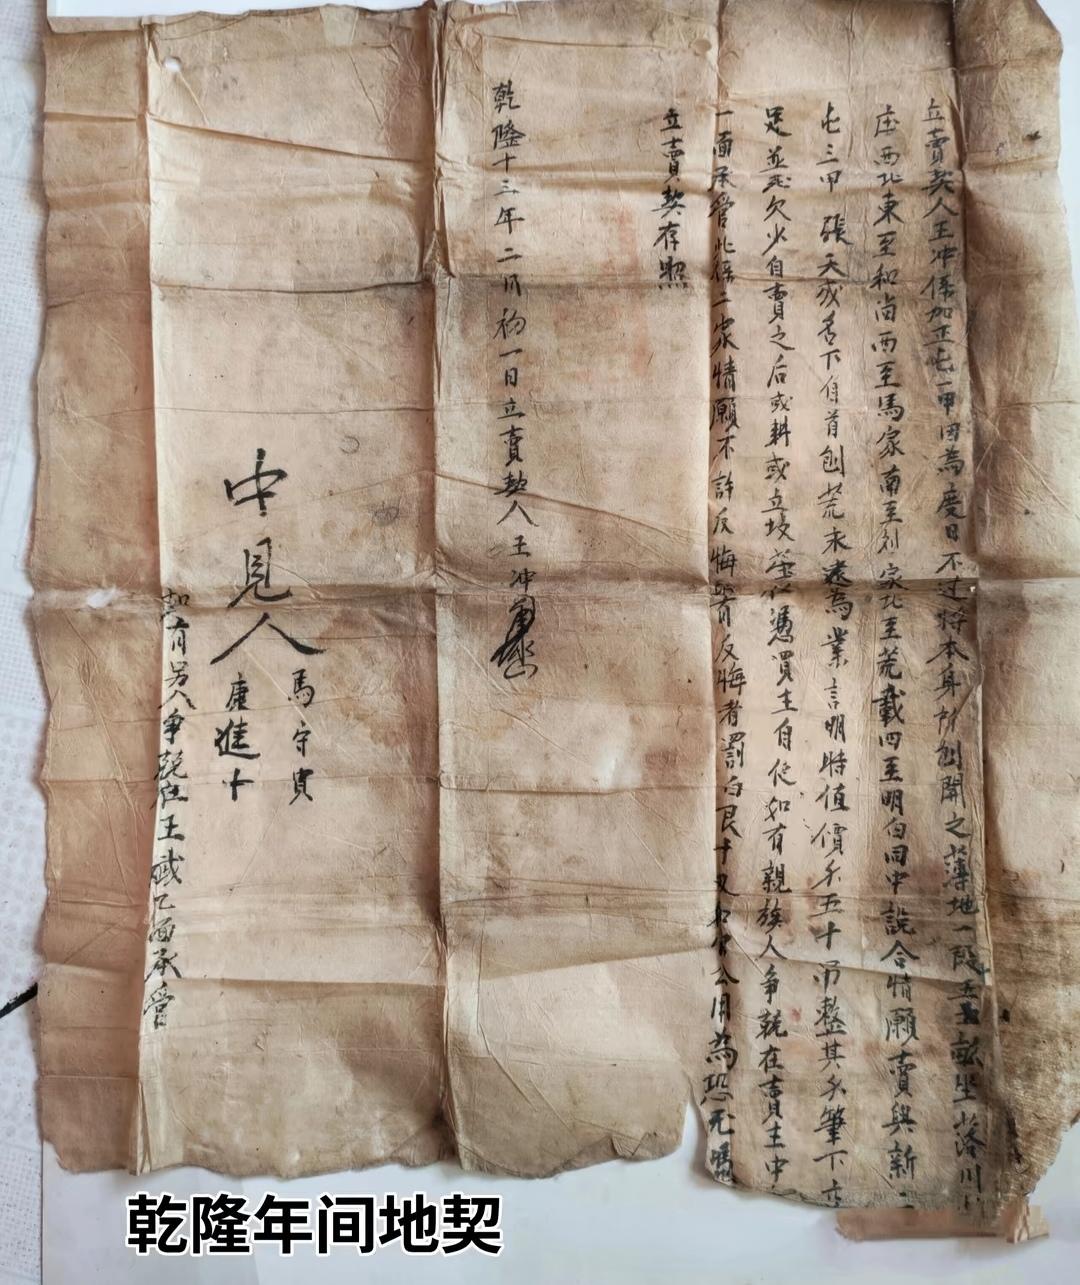 立賣契人王冲係加正屯一甲因為度日不过將本身所刨開之薄地一段五畝坐落川
庄西北東至和尚西至馬家南至刘家北至荒載四至明白同中說合情願賣與新
屯三甲 張天成名下自首刨荒永遠為業言明時值價禾五十吊整其禾筆下
足並無欠少自賣之后或耕或立坟塋憑買主自便如有親族人争競在賣主中
一面承管此係二家情願不許反悔有反悔者罰白艮十入公用為恐无憑
立賣契存照
乾隆十三年二月初一日立賣契人王冲
中見人
馬守寅
康進
如有另人争競在王一面承管
乾隆年间地契